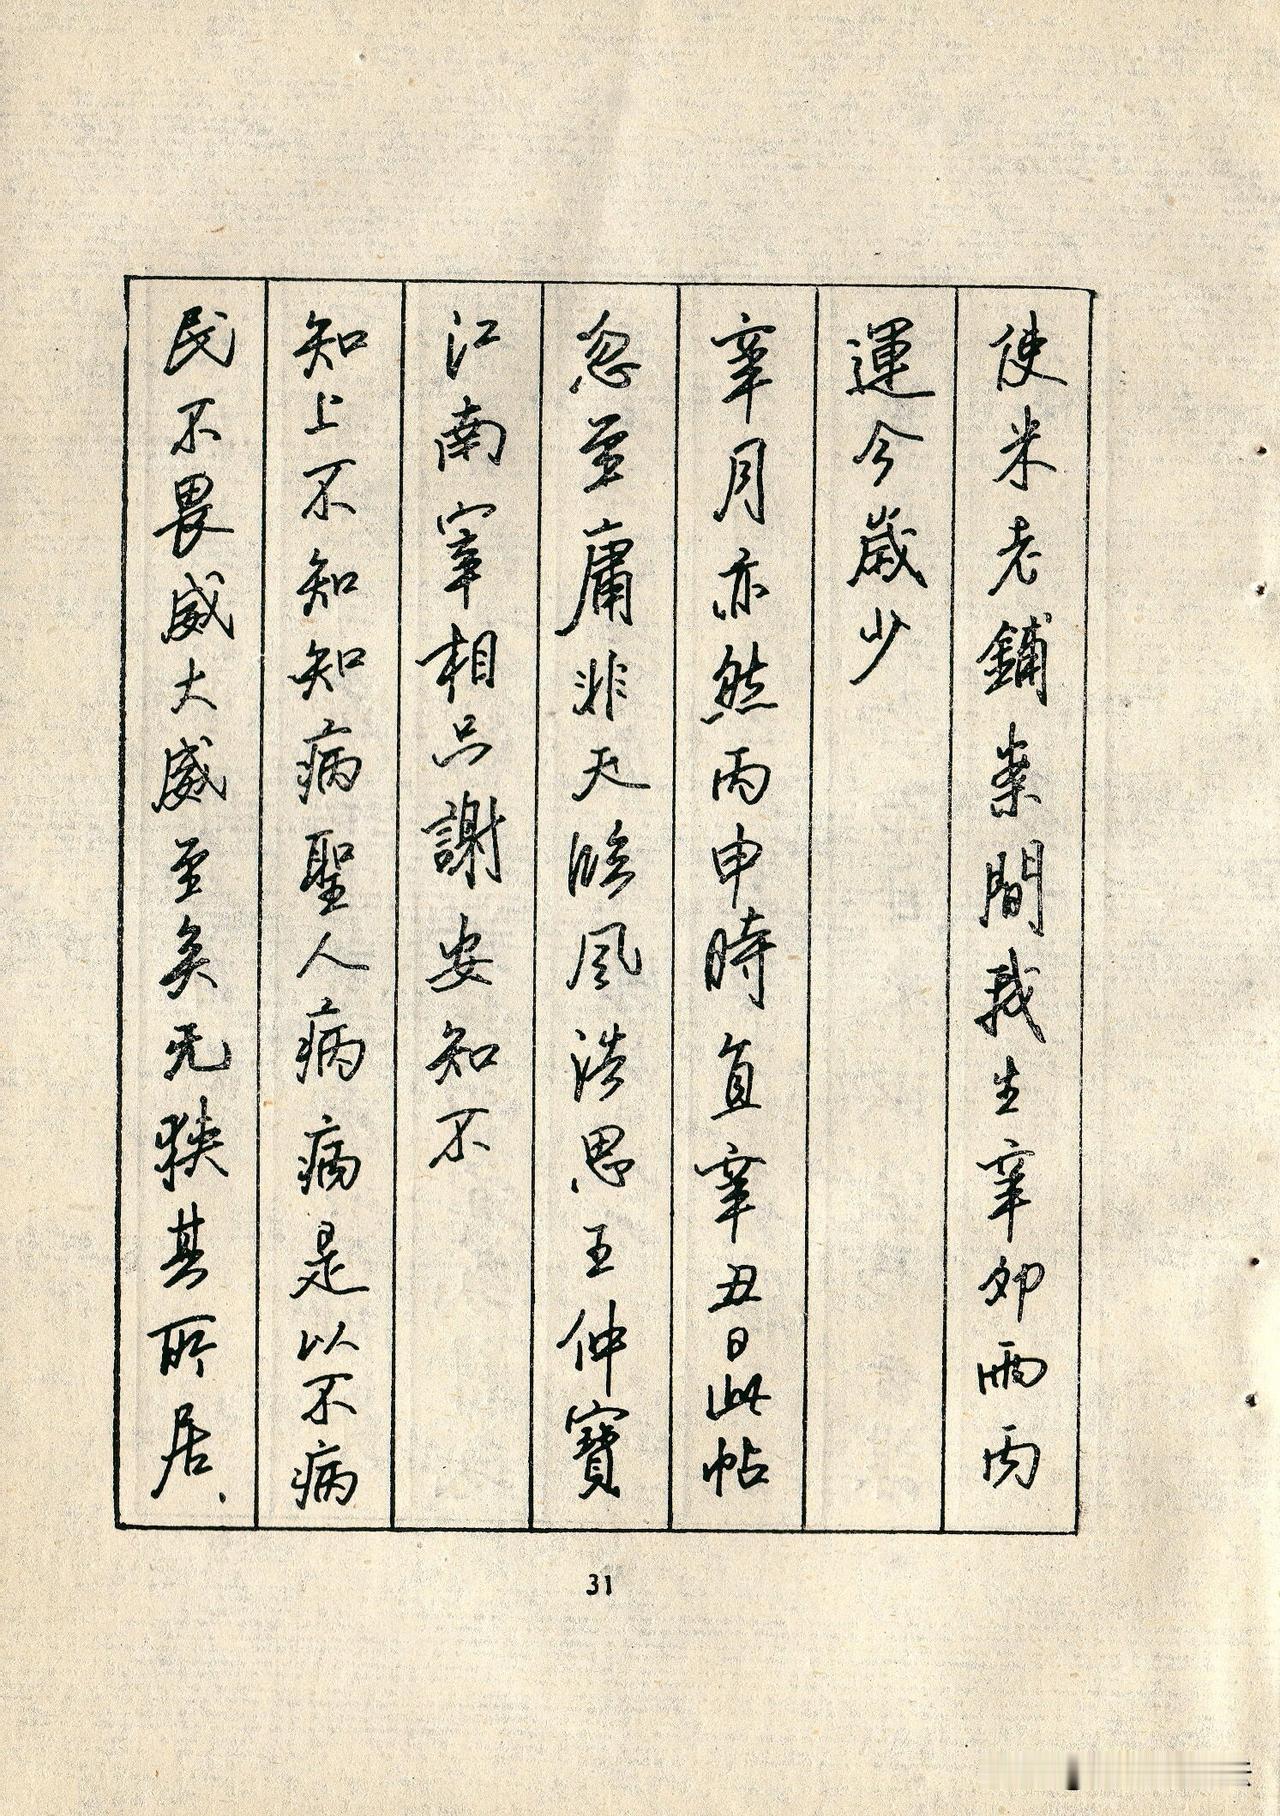 使米老鋪案間我生辛卯兩丙
運今歲少
辛月亦然丙申時直辛丑日此帖
忽至庸非天臨風浩思王仲寶
江南宰相只謝安知不
知上不知知病聖人病病是以不病
民不畏威大威至矣无狹其所居、
31